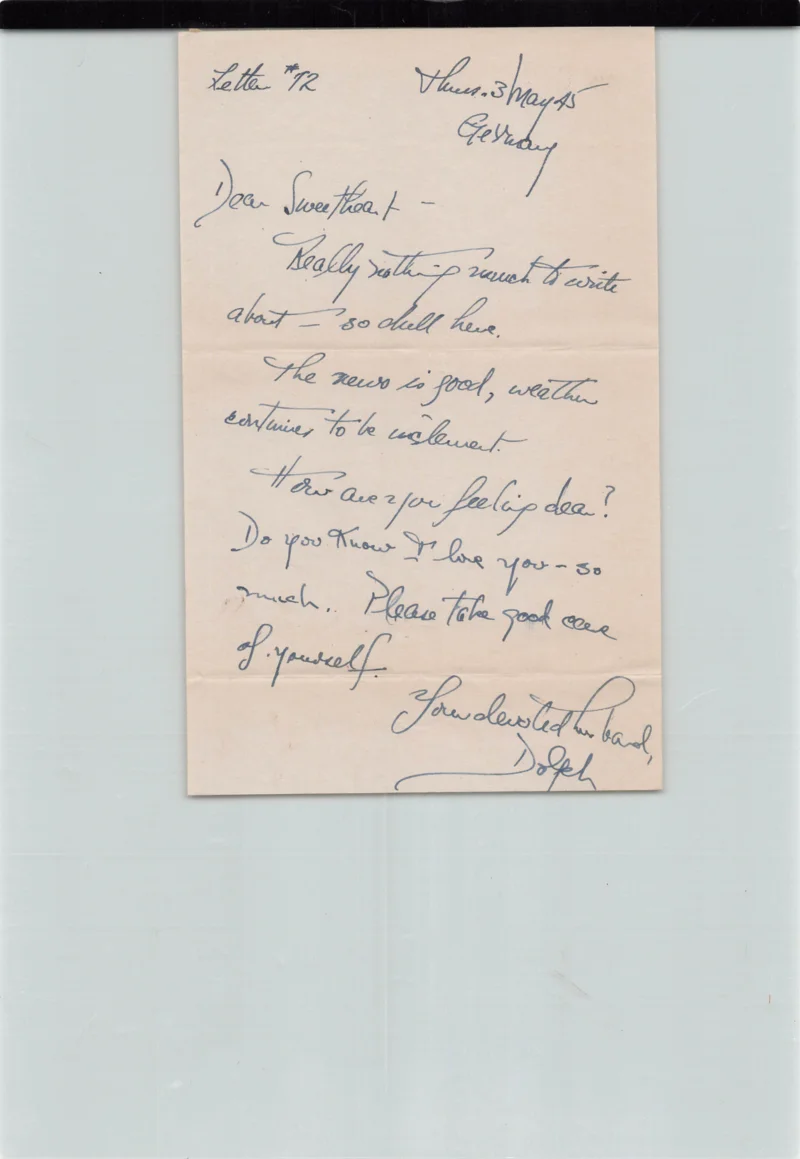 Letter #72
Thurs. 3/May 45
Germany
Dear Sweetheart –
Really nothing much to write
about – so dull here.
The news is good, weather
continues to be inclement.
How are you feeling dear?
Do you Know I love you – so
much. Please take good care
of yourself.
Your devoted husband,
Dolph